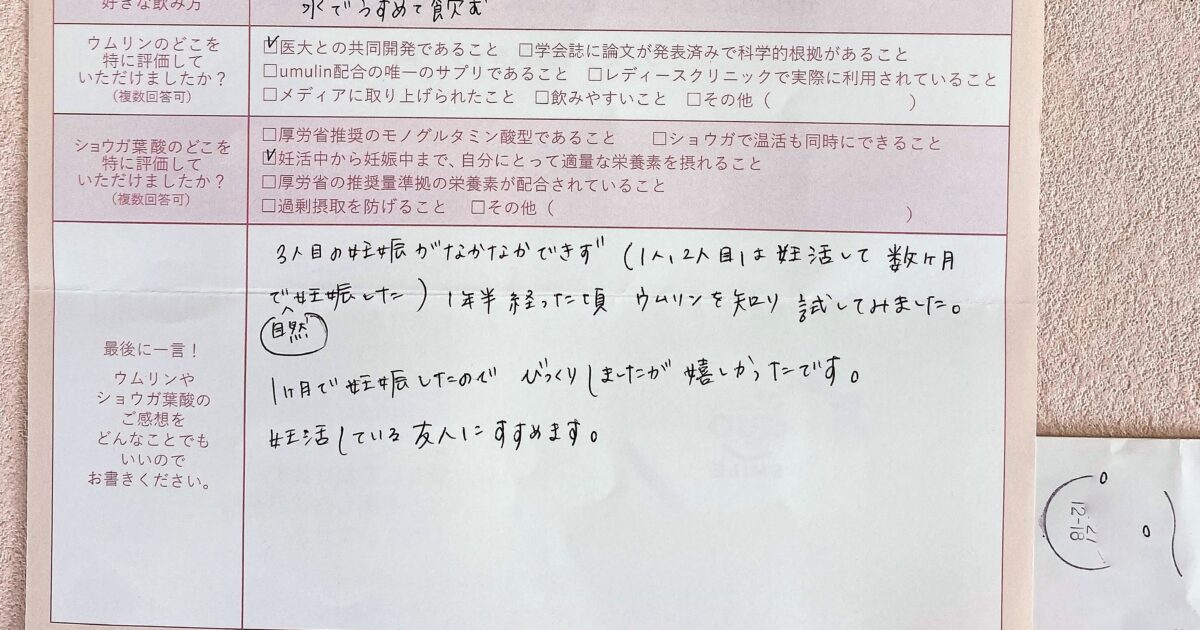 好きな飲み方
水でうすめて飲む
ウムリンのどこを
特に評価して
いただけましたか？
（複数回答可）
☑医大との共同開発であること　□学会誌に論文が発表済みで科学的根拠があること
□umulin配合の唯一のサプリであること　□レディースクリニックで実際に利用されていること
□メディアに取り上げられたこと　□飲みやすいこと　□その他（　　　　　　　　　）
ショウガ葉酸のどこを
特に評価して
いただけましたか？
（複数回答可）
□厚労省推奨のモノグルタミン酸型であること　□ショウガで温活も同時にできること
☑妊活中から妊娠中まで、自分にとって適量な栄養素を摂れること
□厚労省の推奨量準拠の栄養素が配合されていること
□過剰摂取を防げること　□その他（　　　　　　　　　）
最後に一言！
ウムリンや
ショウガ葉酸の
ご感想を
どんなことでも
いいので
お書きください。
3人目の妊娠がなかなかできず（1人、2人目は妊活して数ヶ月
で妊娠した）1年半経った頃 ウムリンを知り試してみました。
自然
1ヶ月で妊娠したので びっくりしましたが嬉しかったです。
妊活している友人にすすめます。
12-18